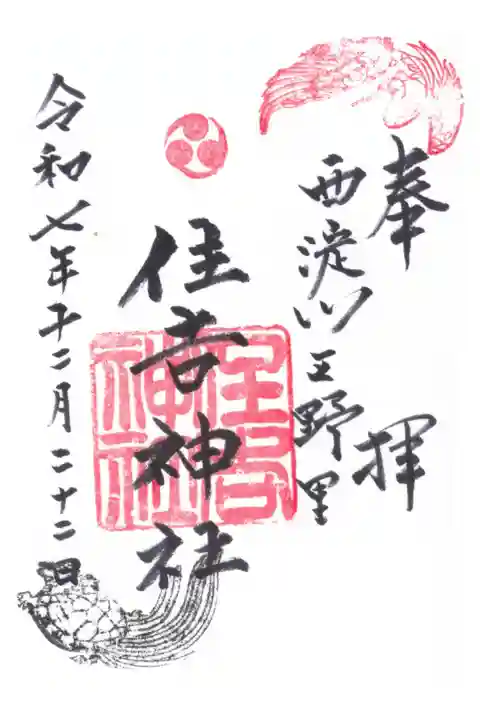 奉拝
西淀川王野里
住吉神社
住吉神社
令和七年十二月二十二日